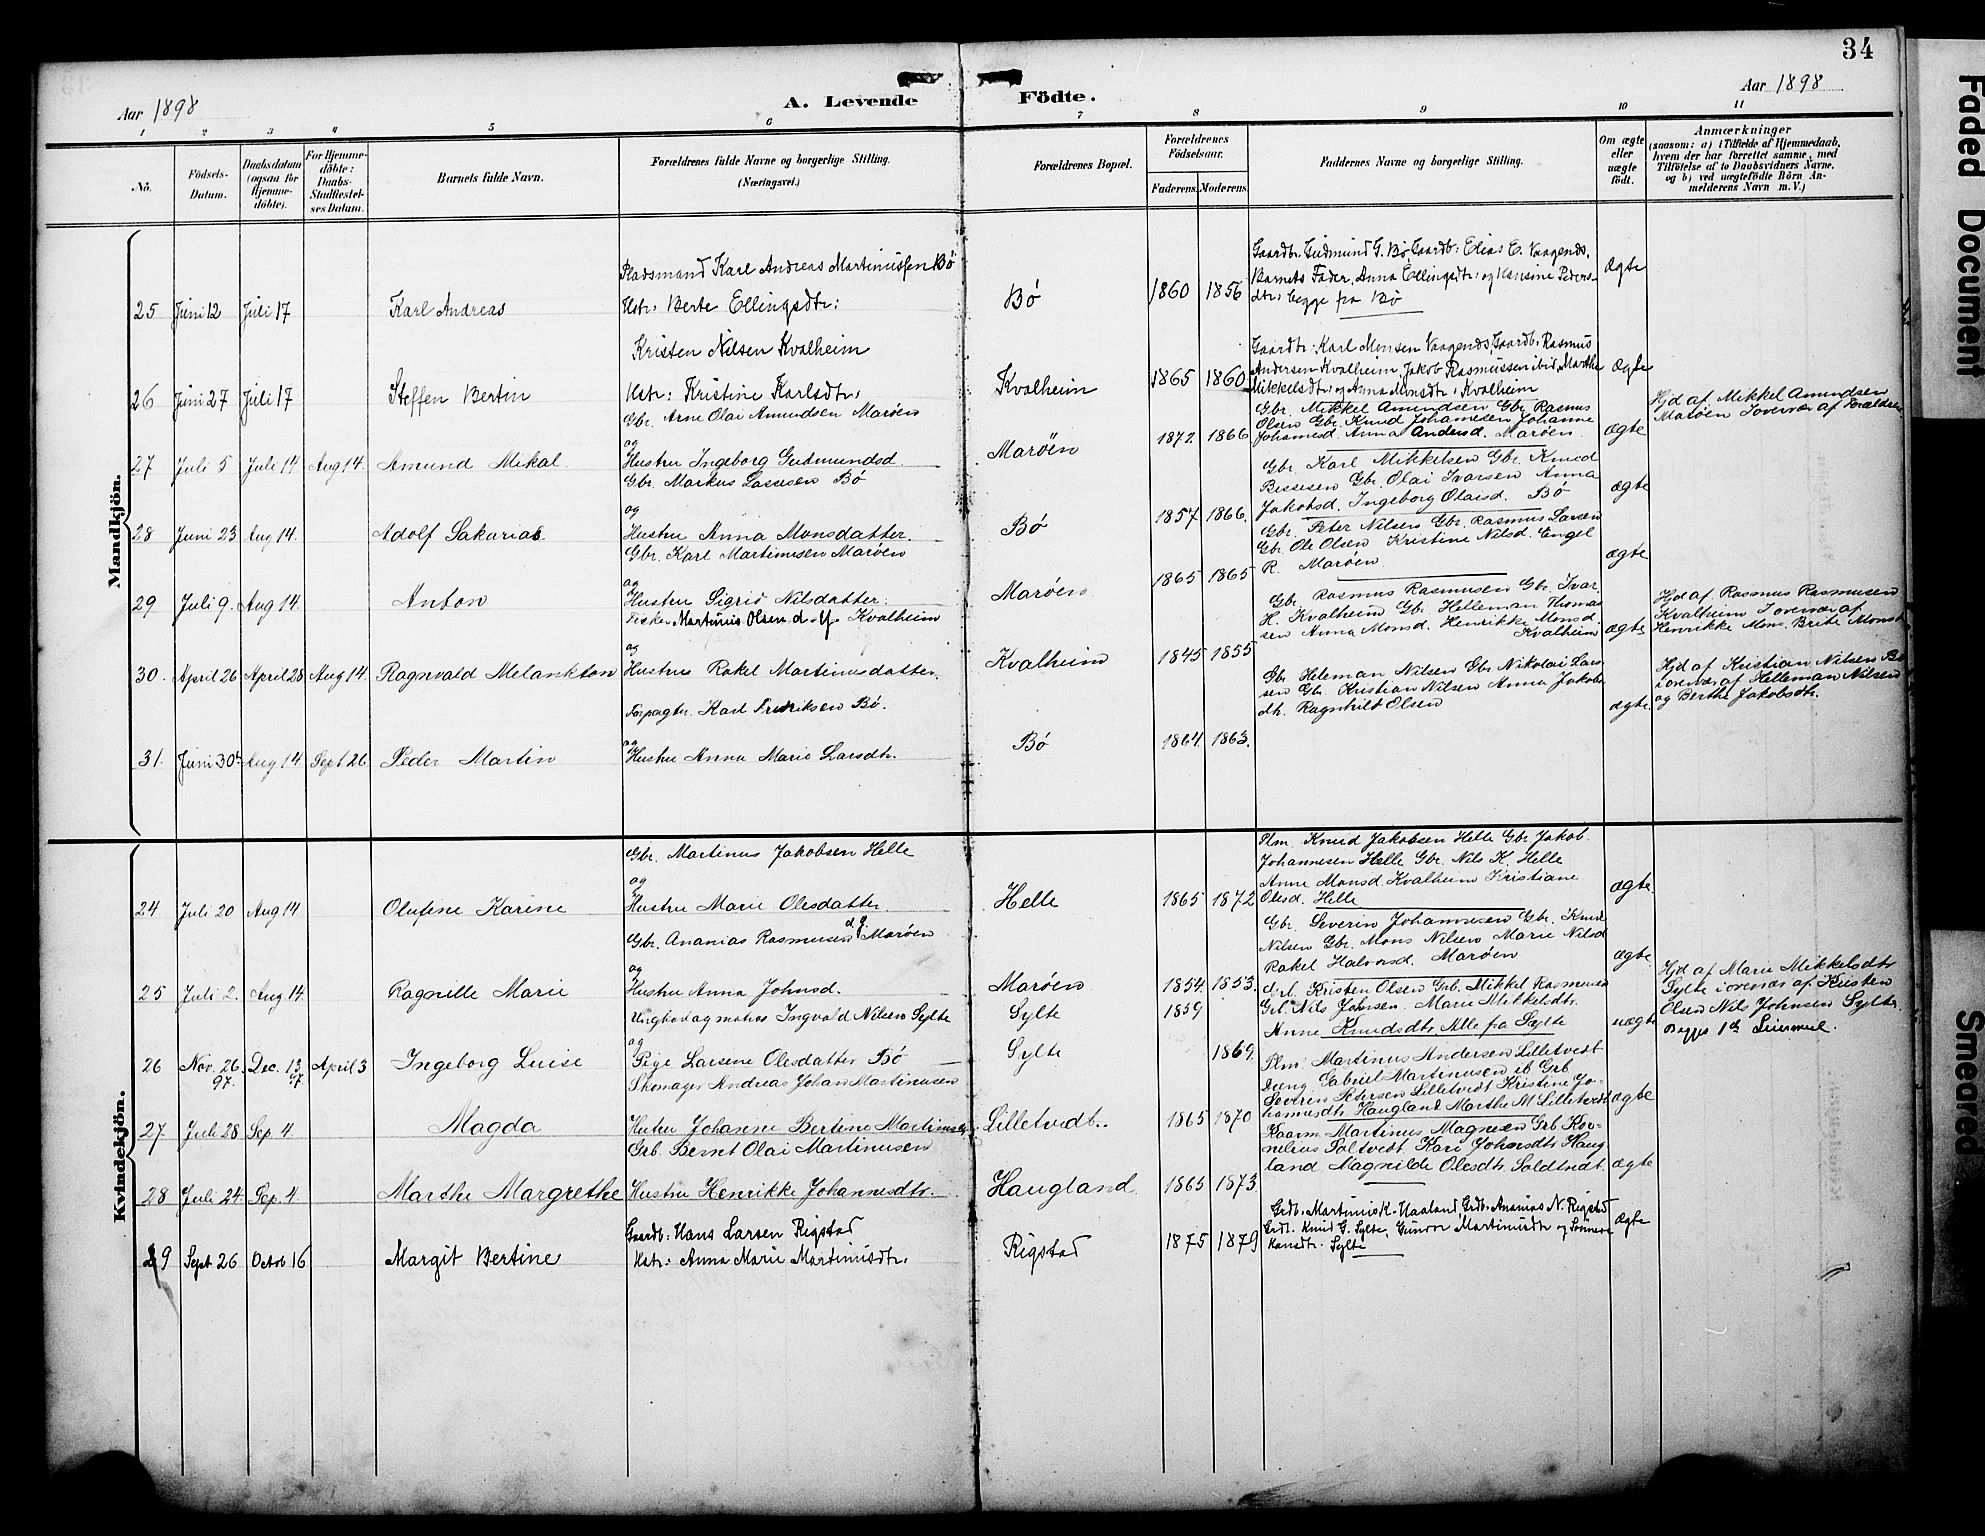 34
Aar 1898
A. Levende Födte.
Aar 1898
1 2 3 4 5 6 7 8 9 10 11
No.
Födsels-
Datum.
Daabsdatum
(ogsaa for
Hjemme-
döbte).
For Hjemme-
döbte:
Daabs-
Stadfæstel-
ses Datum.
Barnets fulde Navn.
Forældrenes fulde Navne og borgerlige Stilling.
(Næringsvei.)
Forældrenes Bopæl.
Forældrenes
Födselsaar.
Faderens. Moderens.
Faddernes Navne og borgerlige Stilling.
Om ægte
eller
uægte
födt.
Anmærkninger
(saasom: a) i Tilfælde af Hjemmedaab,
hvem der har forrettet samme, med
Tilföielse af to Daabsvidners Navne,
og b) ved uægtefödte Börn An-
melderens Navn m. V.)
Mandkjön.
25 Juni 12 Juli 17
Karl Andreas
Pladsmand Karl Andreas Martinussen Bö
Hstr: Berte Ellingsdtr:
Bö
1860 1856
Gaardbr. Gudmund G. Bö, Gaardb: Elias E. Vaagenes,
Barnets Fader, Anna Ellingsdtr: og Hansine Peders-
dtr: begge fra Bö
Ægte
26 Juni 27 Juli 17
Steffen Bertin
Kristen Nilsen Kvalheim
Hstr: Kristine Karlsdtr:
Kvalheim
1865 1860
Gaardbr: Karl Monsen Vaagenes, Gaardb. Rasmus
Andersen Kvalheim, Jakob Rasmussen ibid, Marthe
Mikkelsdtr: og Anna Monsdtr: Kvalheim
Ægte
27 Juli 5 Juli 14 Aug 14.
Amund Mikal.
Gbr. Arne Olai Amundsen Maröen
og
Hustru Ingeborg Gudmundsd.
Maröen
1872 1866
Gbr. Mikkel Amundsen Gbr. Rasmus
Olsen Gbr. Knud Johannesen Johanne
Johannesd. Anna Andersd. Maröen.
ægte
Hjd af Mikkel Amundsen
Maröen I overvær af Forældrene
28 Juni 23 Aug 14.
Adolf Sakarias.
Gbr. Markus Lassesen Bö
og
Hustru Anna Monsdatter.
Bö
1857 1866.
Gbr. Karl Mikkelsen Gbr. Knud
Gbr. Olai Ivarsen Anna
Jakobsd. Ingeborg Olaisd. Bö
ægte
29 Juli 9. Aug 14.
Anton
Gbr. Karl Martinusen Maröen
og
Hustru Sigrid Nilsdatter.
Maröen.
1865 1865
Gbr. Peter Nilsen Gbr. Rasmus Larsen
Gbr. Ole Olsen Kristine Nilsd. Engel
R. Maröen
ægte
30. April 26 April 28 Aug 14.
Ragnvald Melankton
Fisker Martinus Olsen d. y. Kvalheim
og
Hustru Rakel Martinusdatter.
Kvalheim
1845 1855
Gbr. Rasmus Rasmusen Gbr. Ivar
H. Kvalheim Gbr. Helleman Thomas
sen Anna Monsd. Henrikke Monsd.
Kvalheim
ægte
Hjd af Rasmus Rasmusen
Kvalheim I overvær af
Henrikke Mons. Brite Monsd
31. Juni 30 Aug 14 Sept 26
Peder Martin
Forpagter. Karl Fredriksen Bö.
og
Hustru Anna Marie Larsdtr.
Bö
1864 1863.
Gbr. Heleman Nilsen Gbr. Nikolai Lars
sen Gbr. Kristian Nilsen Anna Jakobs
dtr. Ragnhild Olsen
ægte.
Hjd af Kristian Nilsen Bö
i overvær af Helleman Nilsen
og Berthe Jakobsdtr.
Kvindekjön.
24 Juli 20 Aug 14
Olufine Karine
Gbr. Martinus Jakobsen Helle
og
Hustru Marie Olesdatter.
Helle
1865 1872
Plm. Knud Jakobsen Helle Gbr. Jakob
Johannesen Helle Gbr. Nils K. Helle
Anne Monsd. Kvalheim Kristiane
Olesd. Helle
ægte.
25 Juli 2. Aug 14.
Ragnelle Marie
Gbr. Ananias Rasmusen d. y. Maröen
og
Hustru Anna Johnsd.
Maröen
1854. 1853.
Gbr. Severin Johannesen Gbr. Knud
Nilsen Gbr. Mons Nilsen Marie Nilsd
Rakel Halvorsd. Maröen
ægte.
26 Nov. 26 97. Dec. 13 97 April 3
Ingeborg Luise
Ungkar Ingvald Nilsen Sylte
og
Pige Larsene Olesdatter Bö
Sylte
Sylte
1859
1869.
Kristen Olsen Grb. Mikkel Rasmusen
Grb. Nils Johnsen. Marie Mikkelsdtr.
Anne Knudsdtr. Alle fra Sylte
uægte
Hjd af Marie Mikkelsdtr
Sylte i overvær af Kristen
Olsen Nils Johnsen Sylte.
Begges 1ste Leiermaal.
27 Juli 28 Sep. 4
Magda
Skomager Andreas Johan Martinusen
Hustru Johanne Bertine Martinusd.
Lilletvedt..
1865 1870
Plm: Martinus Andersen Lilletvedt
Gabriel Martinusen ib Grb
Severin Petersen Lilletvedt Kristine Jo-
hannesdtr. Haugland Marthe M Lilletvedt
ægte
28 Juli 24. Sep. 4.
Marthe Margrethe
Grb. Bernt Olai Martinusen
Hustru Henrikke Johannesdtr.
Haugland.
1865 1873
Kaarm. Martinus Magnesen Grb Kor-
nelius Saltvedt Kari Johansdtr. Haug
land Magnilde Olesdtr. Saldtvedt.
ægte
29 Sept 26 Octob 16
Margit Bertine
Gaardb: Hans Larsen Rigstad
Hstr: Anna Marie Martinusdtr.
Rigstad
1875 1879
Grdb. Martinus K. Haaland, Grdb. Ananias N. Rigstad
Grdb. Knud G. Sylte, Gunvor Martinusdtr og
Hansdtr. Sylte
Ægte
Faded Document
Smeared